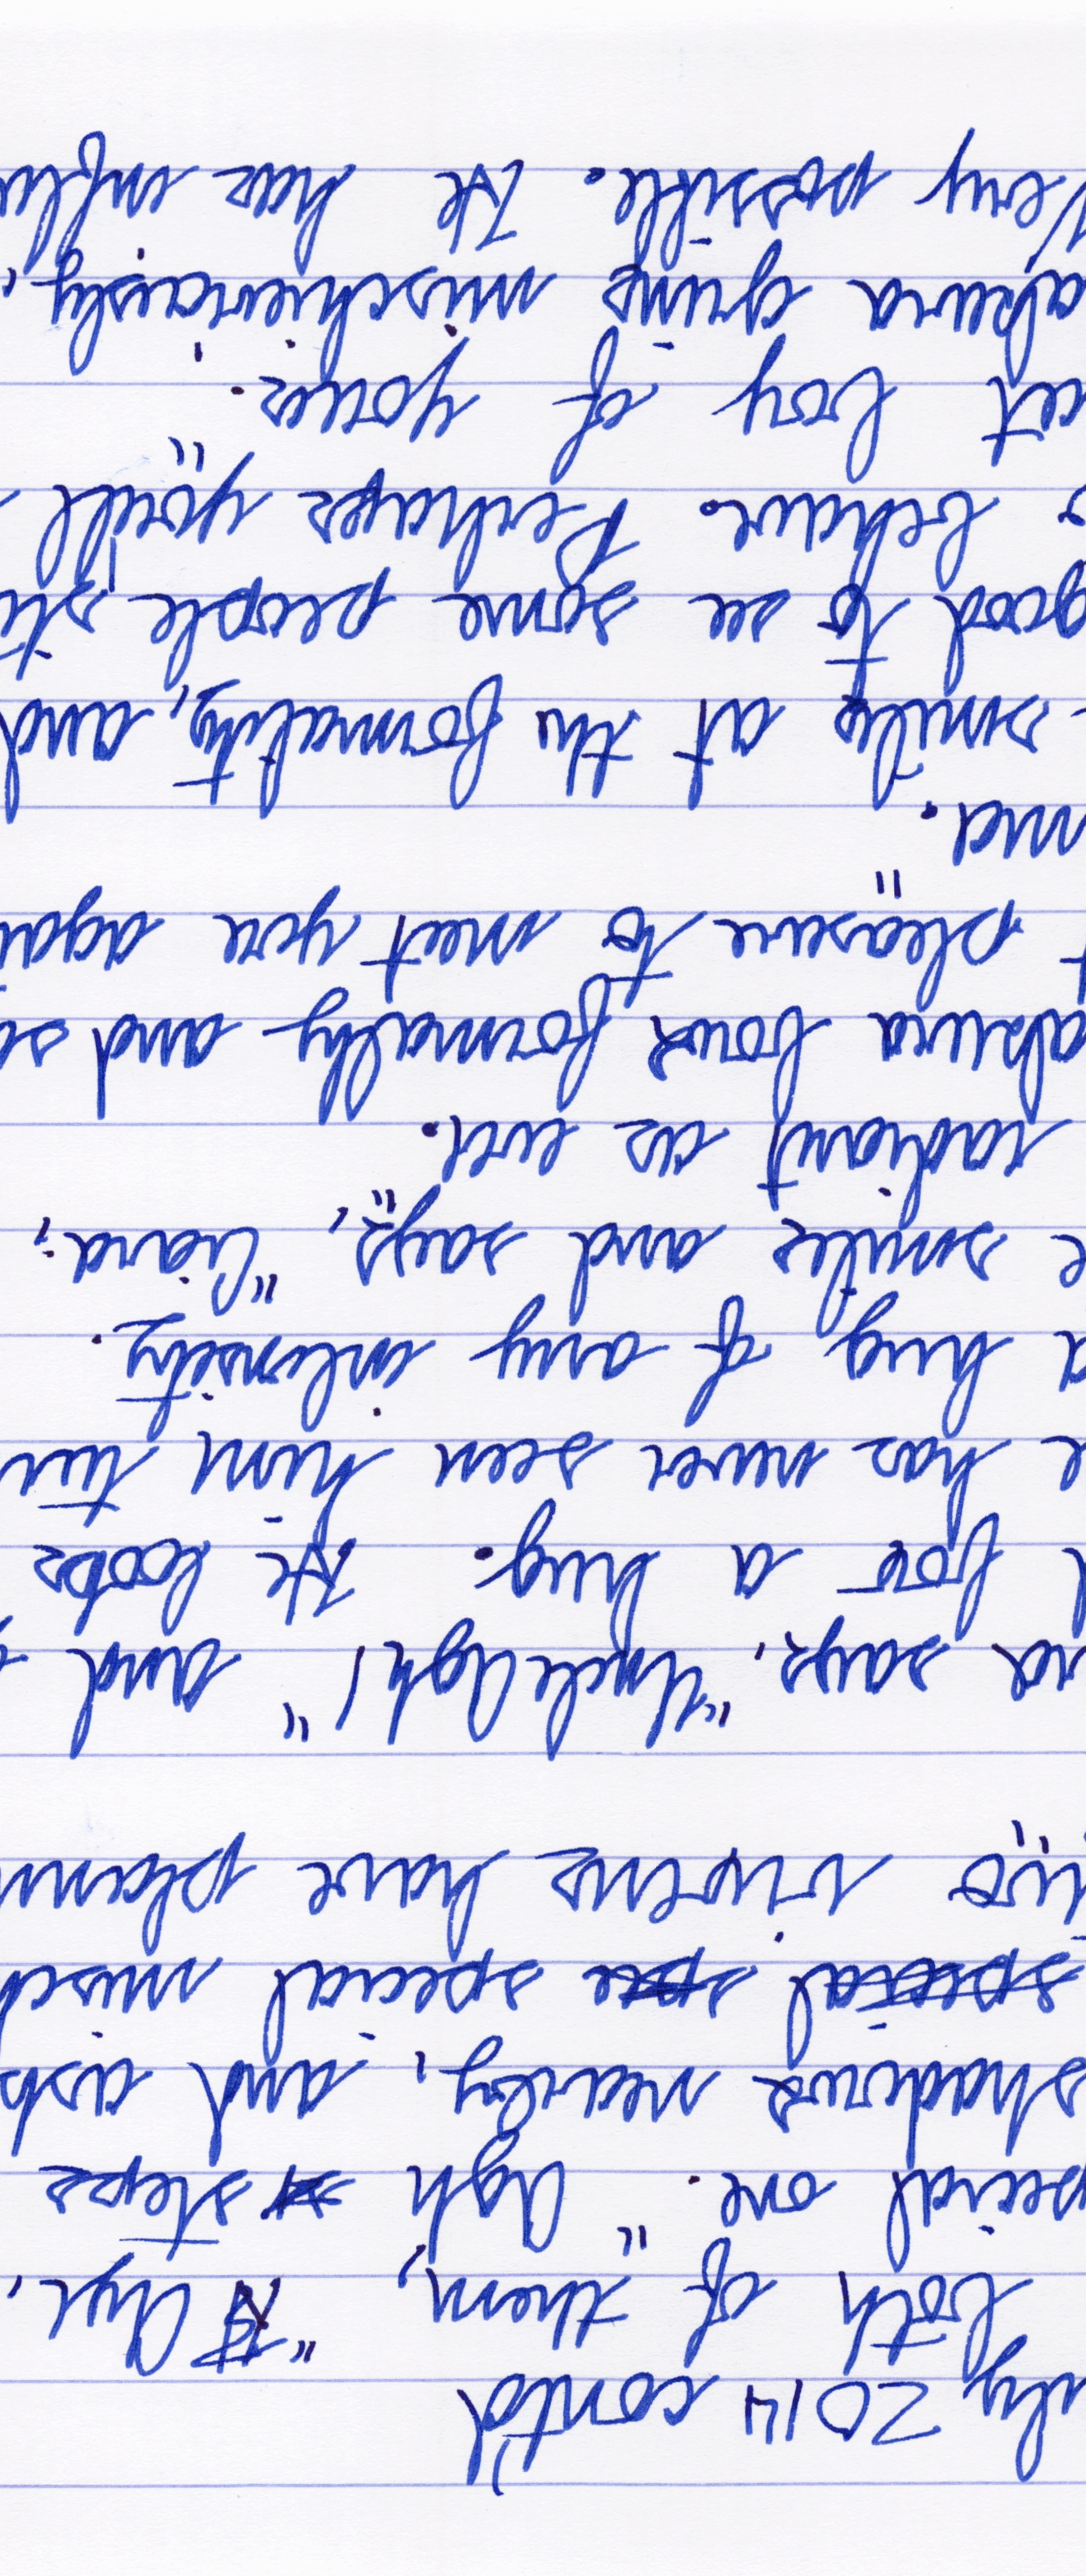 uly 2014 contd
both of them, "Aye,
pecial one." Agh steps
shadows nearby, and ask
special spe special misch
rivens have plann
na says, "Uncle Agh!" and
d for a hug. He looks
e has never seen him tur
a hug of any intensity.
e smiles and says, "Ciara,
radiant as ever."
akura bows formally and sa
t pleasure to meet you aga
ma."
smiles at the formality, and
good to see some people sti
o behave. Perhaps you'll
et boy of yours."
akura grins mischievously,
Very possible. He has influ